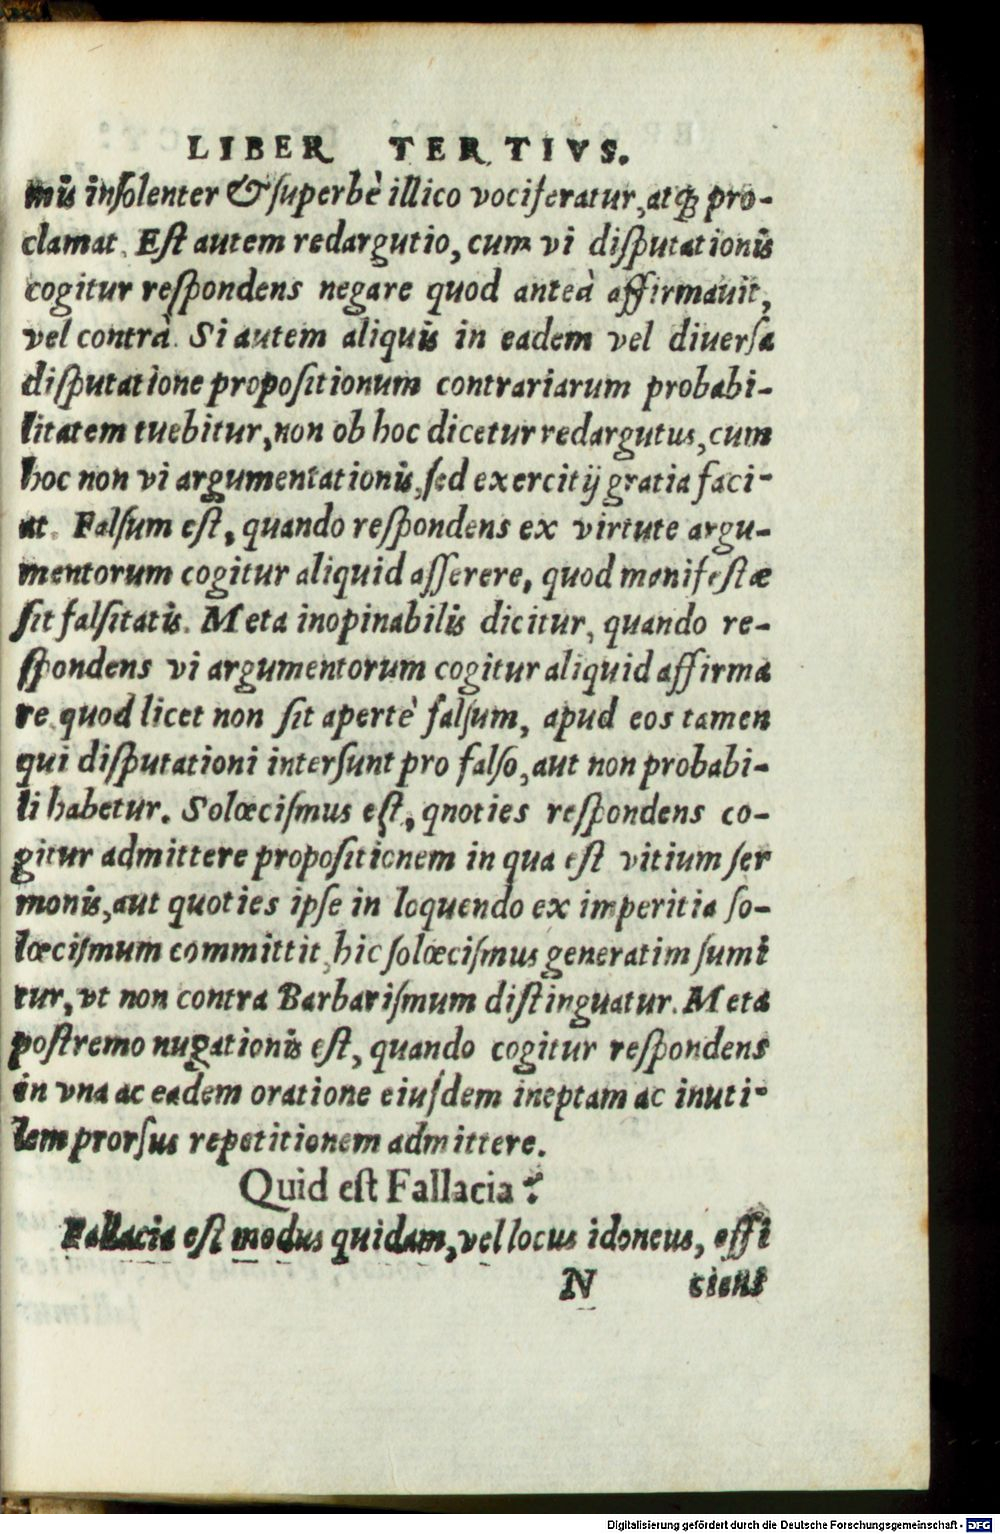 LIBER TERTIVS.
mus insolenter & superbè illico vociferatur, atq́; pro-
clamat. Est autem redargutio, cum vi disputationis
cogitur respondens negare quod anteà affirmauit,
vel contrà. Si autem aliquis in eadem vel diuersa
disputatione propositionum contrariarum probabi-
litatem tuebitur, non ob hoc dicetur redargutus, cum
hoc non vi argumentationis, sed exercitij gratia faci-
at. Falsum est, quando respondens ex virtute argu-
mentorum cogitur aliquid asserere, quod manifestæ
sit falsitatis. Meta inopinabilis dicitur, quando re-
spondens vi argumentorum cogitur aliquid affirma
re quod licet non sit apertè falsum, apud eos tamen
qui disputationi intersunt pro falso, aut non probabi-
li habetur. Solœcismus est, qnoties respondens co-
gitur admittere propositionem in qua est vitium ser
monis, aut quoties ipse in loquendo ex imperitia so-
lœcismum committit, hic solœcismus generatim sumi
tur, vt non contra Barbarismum distinguatur. Meta
postremo nugationis est, quando cogitur respondens
in vna ac eadem oratione eiusdem ineptam ac inuti-
lem prorsus repetitionem admittere.
Quid est Fallacia?
Fallacia est modus quidam, vel locus idoneus, effi
N ciens
Digitalisierung gefördert durch die Deutsche Forschungsgemeinschaft - DFG